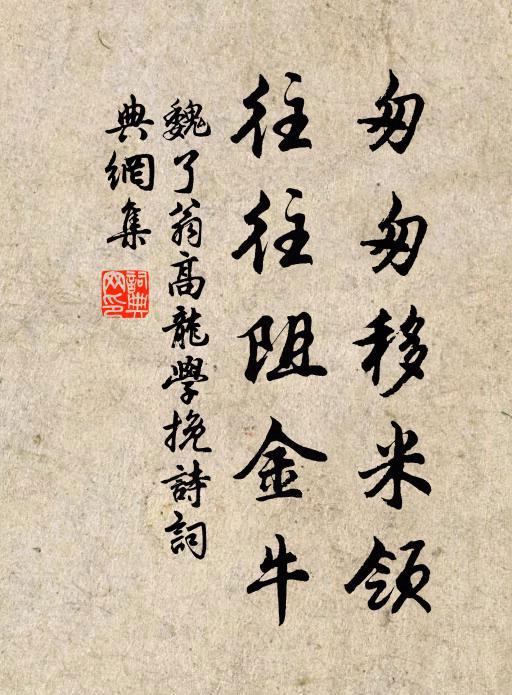 匆匆移米領
往往阻金牛
魏了翁高龍學挽詩詞
典網集
詞典網印